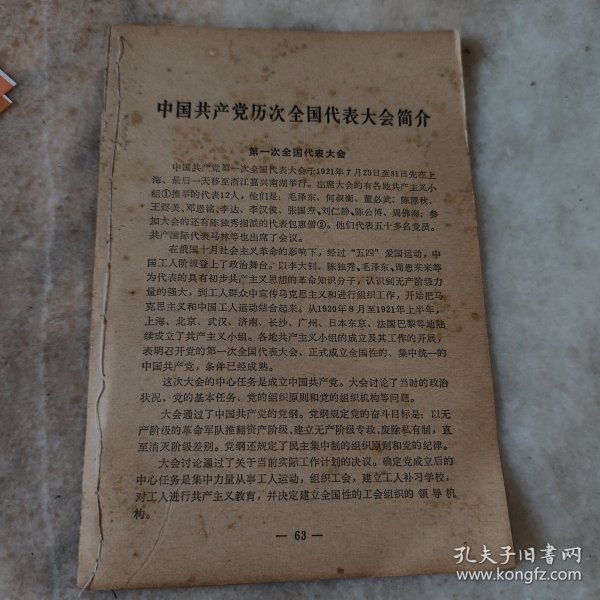 中国共产党历次全国代表大会简介
第一次全国代表大会
中国共产党第一次全国代表大会于1921年7月23日至31日先在上
海、最后一天移至浙江嘉兴南湖举行。出席大会的有各地共产主义小
组①推举的代表12人，他们是：毛泽东、何叔衡、董必武、陈潭秋、
王烬美、邓恩铭、李达、李汉俊、张国焘、刘仁静、陈公博、周佛海；参
加大会的还有陈独秀指派的代表包惠僧②。他们代表五十多名党员。
共产国际代表马林等也出席了会议。
在俄国十月社会主义革命的影响下，经过“五四”爱国运动，中
国工人阶级登上了政治舞台。以李大钊、陈独秀、毛泽东、周恩东来等
为代表的具有初步共产主义思想的革命知识分子，认识到无产阶级力
量的强大，到工人群众中宣传马克思主义和进行组织工作，开始把马
克思主义和中国工人运动结合起来。从1920年8月至1921年上半年，
上海、北京、武汉、济南、长沙、广州、日本东京、法国巴黎等地陆
续成立了共产主义小组。各地共产主义小组的成立及其工作的开展，
表明召开党的第一次全国代表大会、正式成立全国性的、集中统一的
中国共产党，条件已经成熟。
这次大会的中心任务是成立中国共产党。大会讨论了当时的政治
状况、党的基本任务、党的组织原则和党的组织机构等问题。
大会通过了中国共产党的党纲。党纲规定党的奋斗目标是：以无
产阶级的革命军队推翻资产阶级，建立无产阶级专政，废除私有制，直
至消灭阶级差别。党纲还规定了民主集中制的组织原则和党的纪律。
大会讨论通过了关于当前实际工作计划的决议。确定党成立后的
中心任务是集中力量从事工人运动，组织工会，建立工人补习学校，
对工人进行共产主义教育，并决定建立全国性的工会组织的领导机
构。
— 63 —
孔夫子旧书网
www.kongfz.com